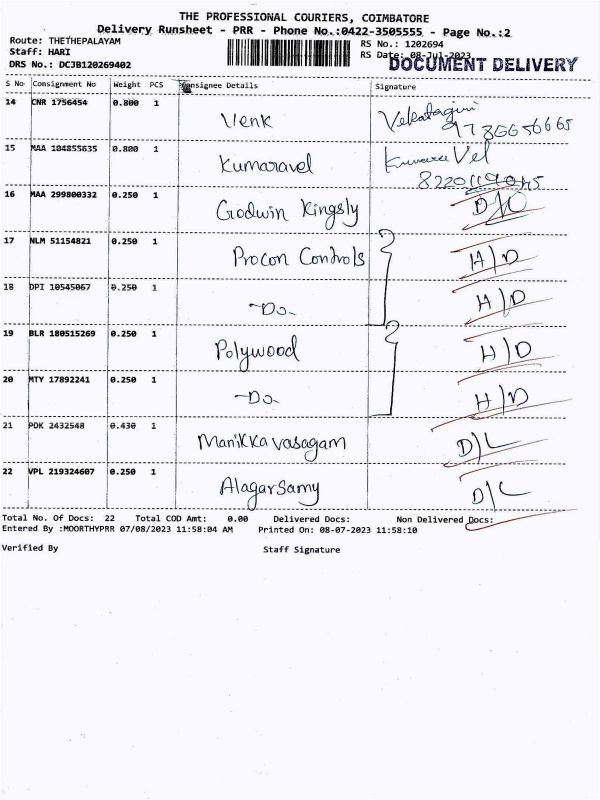 THE PROFESSIONAL COURIERS, COIMBATORE
Delivery Runsheet - PRR - Phone No.:0422-3505555 - Page No.:2
Route: THETHEPALAYAM
RS No.: 1202694
Staff: HARI
RS Date: 08-Jul-2023
DOCUMENT DELIVERY
DRS No.: DCJB120269402
S No Consignment No Weight PCS Consignee Details Signature
14 CNR 1756454 0.800 1 Venk
15 MAA 104855635 0.800 1 Kumaravel Kumara Vel
16 MAA 299800332 0.250 1 Godwin Kingsly
17 NLM 51154821 0.250 1 Procon Controls H/D
18 DPI 10545067 0.250 1 -Do- H/D
19 BLR 180515269 0.250 1 Polywood H/D
20 MTY 17892241 0.250 1 -Do- H/D
21 PDK 2432548 0.430 1 Manikkavasagam D/L
22 VPL 219324607 0.250 1 Alagarsamy D/L
Total No. Of Docs: 22 Total COD Amt: 0.00 Delivered Docs: Non Delivered Docs:
Entered By :MOORTHYPRR 07/08/2023 11:58:04 AM Printed On: 08-07-2023 11:58:10
Verified By Staff Signature